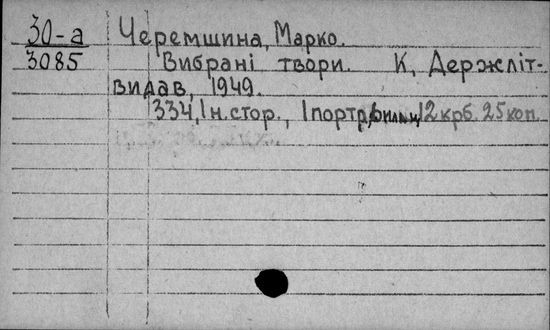 30-а Черемшина, Марко.
3085 Вибрані твори. К, Держліт-
видав, 1949.
334, 1 н. стор., 1 портр, 12 крб. 25 коп.